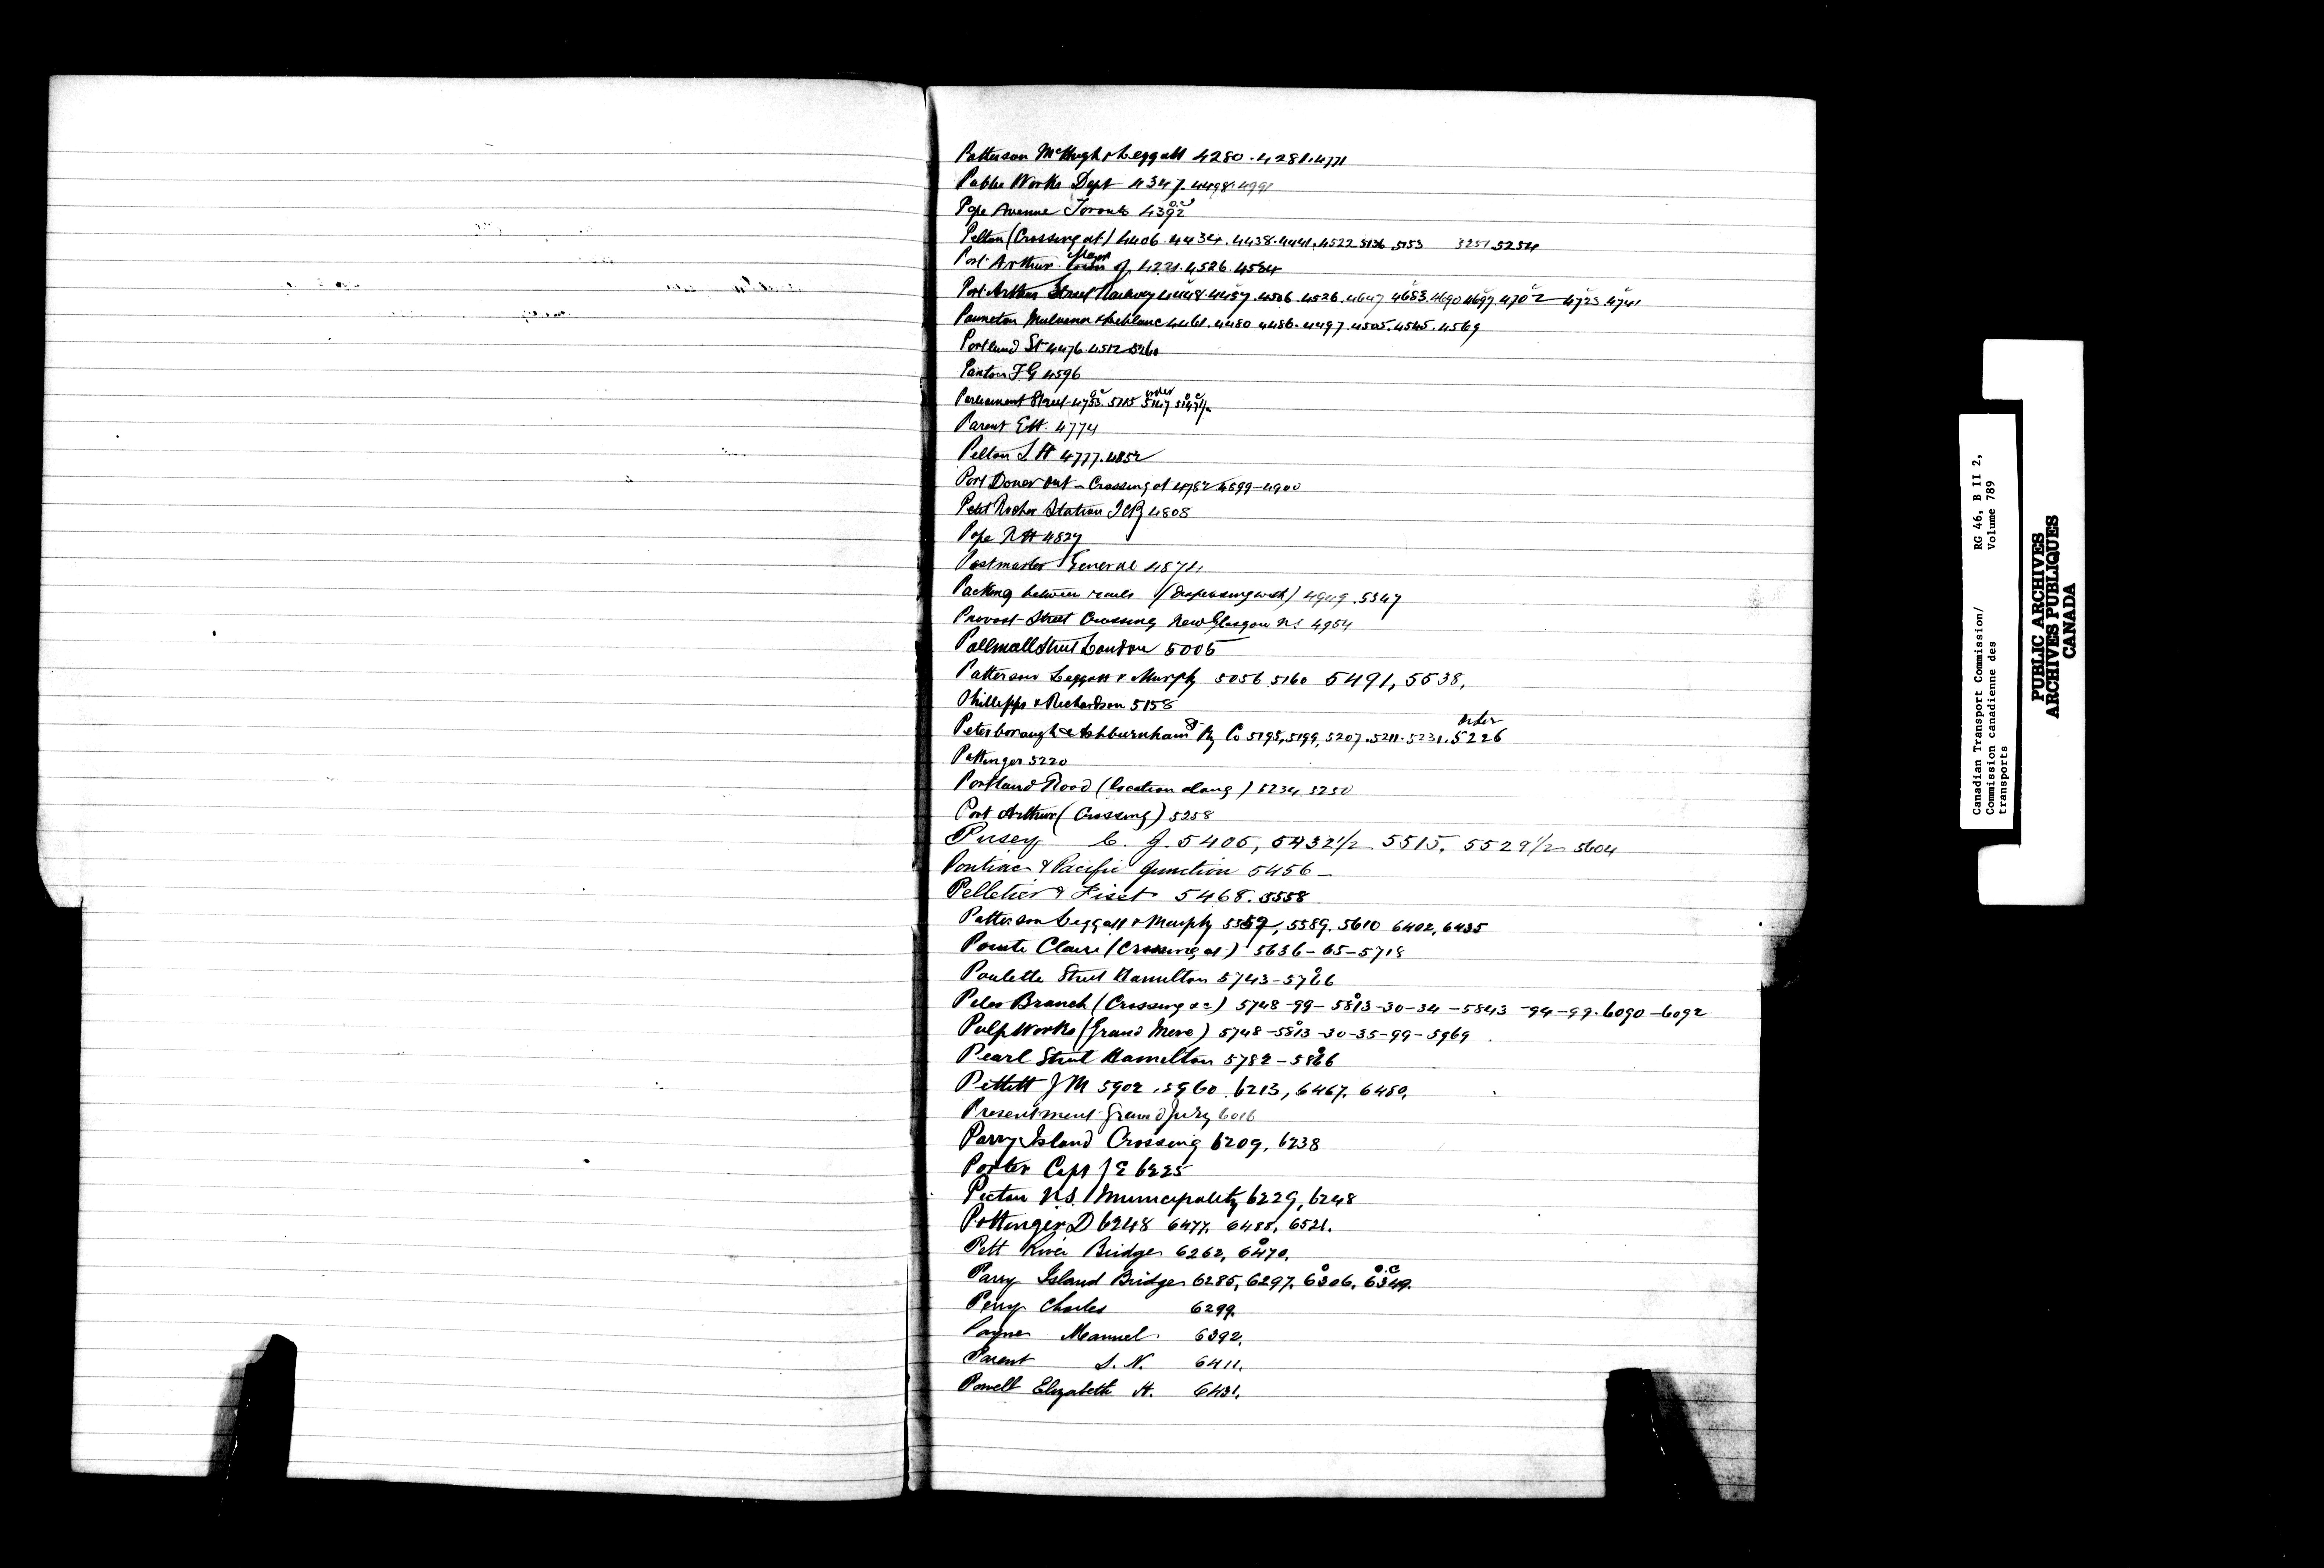 Patterson McHugh & Leggatt 4280.4281.4771
Public Works Dept 4347.4498.4991
Pope Avenue Toronto 4392
Pelton (Crossing at) 4406.4434.4438.4441.4522 5136 5153 3251 5254
Port Arthur Mayor of 4221.4526.4584
Port Arthur Street Railway 4448.4457.4506 4526.4647 4653.4690 4697.4702 4723.4741
Mulvena & Leblanc 4461.4480 4486.4497.4505.4545.4569
Portland St 4476.4512 5260
Paxton F G 4596
Parliament Street 4733. 5115 order 5147
Parent 4774
Pelton L H 4777.4852
Port Dover Ont - Crossing at 4782 4899-4900
Petit Rocher Station ICR 4808
Pope R H 4827
Postmaster General 4874
Packing between rails (dispensing with) 4949.5347
Provost Street Crossing New Glasgow N.S 4954
Pallmall Street London 5005
Patterson Leggatt & Murphy 5056 5160 5491, 5538,
Phillipps & Richardson 5158
Peterborough & Ashburnham St Ry Co 5195,5199,5207.5211.5231.order 5226
Pottinger 5220
Portland Road (location along) 5234 5250
Port Arthur (Crossing) 5258
Pusey C. J. 5405, 5432 1/2 5515, 5529 1/2 5604
Pontiac & Pacific Junction 5456 -
Pelletier & Fiset 5468.5558
Patterson Leggatt & Murphy 5557, 5589. 5610 6402, 6435
Pointe Claire (Crossing at) 5636-65-5718
Paulette Street Hamilton 5743-5766
Piles Branch (Crossing &c) 5748-99-5813-30-34-5843-94-99.6090-6092
Pulp Works (Grand Mere) 5748-5813-30-35-99-5969
Pearl Street Hamilton 5782-5866
Pettett J M 5902.5960.6213, 6467. 6480,
Presentment Grand Jury 6016
Parry Island Crossing 6209, 6238
Porter Capt J E 6225
Pictou N.S. Municipality 6229, 6248
Pottinger D 6248 6477. 6485, 6521.
Pett River Bridge 6262, 6470.
Parry Island Bridge 6285, 6297. 6306, O.C 6349.
Perry Charles 6299.
Payne Manuel 6392.
Parent S. N. 6411.
Powell Elizabeth H. 6431.
Canadian Transport Commission/ RG 46, B II 2,
Commission canadienne des Volume 789
transports
PUBLIC ARCHIVES
ARCHIVES PUBLIQUES
CANADA